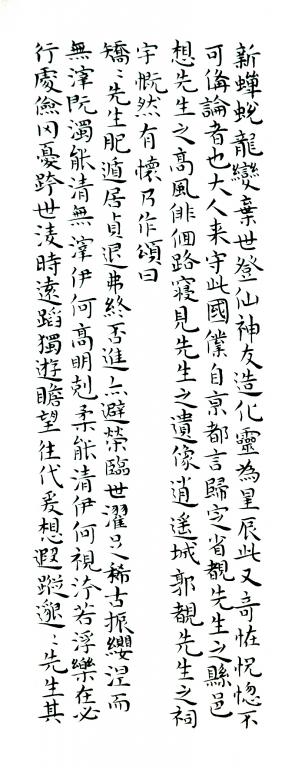 新蟬蛻龍變棄世登仙神友造化靈為星辰此又奇怪怳惚不
可備論者也大人来守此國僕自京都言歸定省覩先生之縣邑
想先生之高風俳佪路寢見先生之遺像逍遥城郭覩先生之祠
宇慨然有懷乃作頌曰
矯〻先生肥遁居貞退弗終否進亦避榮臨世濯足稀古振纓涅而
無滓既濁能清無滓伊何高明剋柔能清伊何視汙若浮樂在必
行處儉罔憂跨世淩時遠蹈獨遊瞻望往代爰想遐蹤邈〻先生其